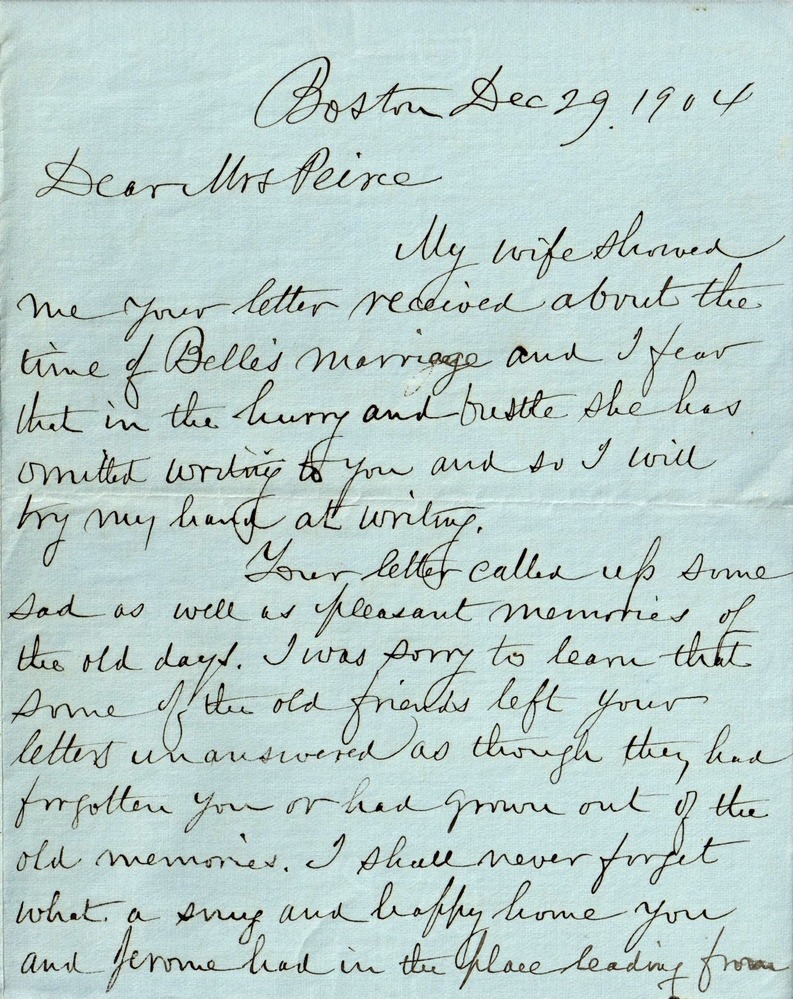 Boston Dec 29. 1904
Dear Mrs Peirce
My wife showed
me your letter received about the
time of Belle's marriage and I fear
that in the hurry and bustle she has
omitted writing to you and so I will
try my hand at writing.
Your letter called up some
sad as well as pleasant memories of
the old days. I was sorry to learn that
some of the old friends left your
letters unanswered as though they had
forgotten you or had grown out of the
old memories. I shall never forget
what a snug and happy home you
and Jerome had in the place leading from